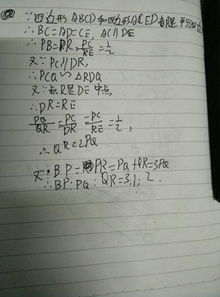 ∵四边形ABCD和四边形ACED都是平行四边
∴BC=AD=CE, AC∥DE
∴PB=PR, PC/RE=1/2
又∵PC∥DR,
∴△PCQ∽△RDQ
又∵点R是DE中点,
∴DR=RE
PQ/QR=PC/DR=PC/RE=1/2,
∴QR=2PQ
又∵BP=PR=PQ+QR=3PQ
∴BP:PQ:QR=3:1:2.